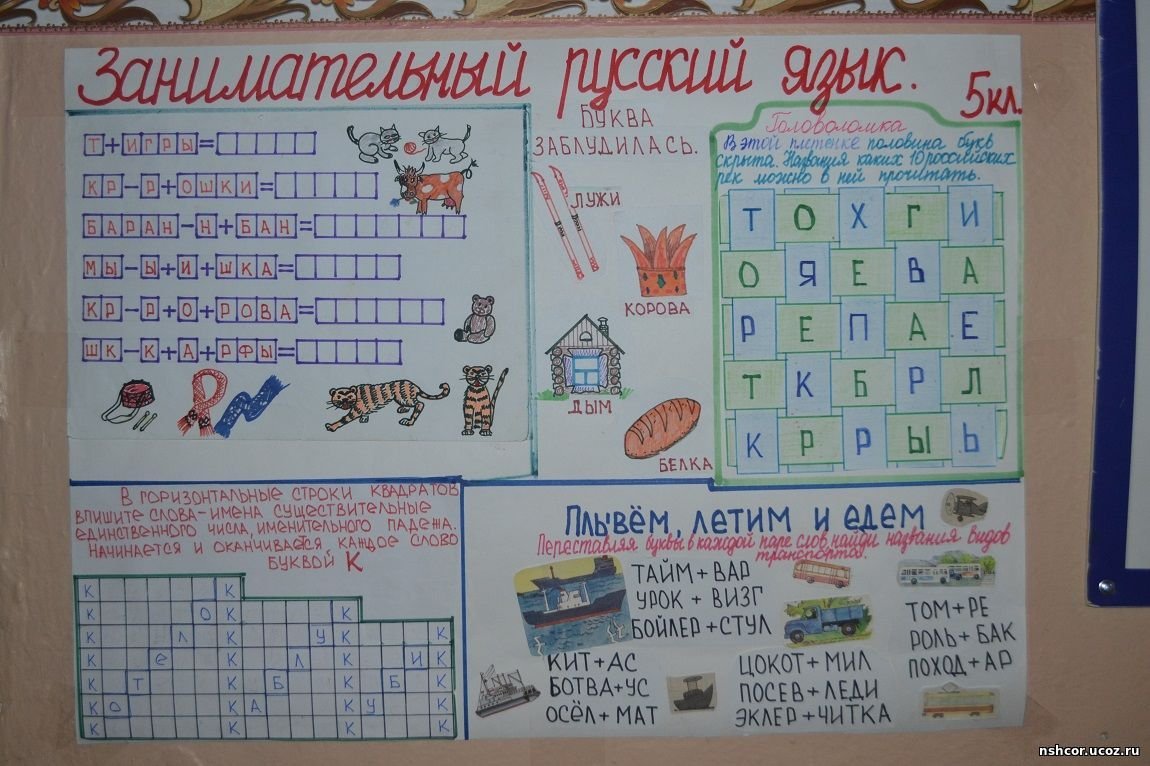 Занимательный русский язык.
5кл.
Т+ИГРЫ=
КР-Р+ОШКИ=
БАРАН-Н+БАН=
МЫ-Ы+И+ШКА=
КР-Р+О+РОВА=
ШК-К+А+РФЫ=
БУКВА
ЗАБЛУДИЛАСЬ.
ЛУЖИ
КОРОВА
ДЫМ
БЕЛКА
Головоломка
В этой плетенке половина букв
скрыта. Названия каких 10 российских
рек можно в ней прочитать.
Т О Х Г И
О Я Е В А
Р Е П А Е
Т К Б Р Л
К Р Р Ы Ь
В ГОРИЗОНТАЛЬНЫЕ СТРОКИ КВАДРАТОВ
ВПИШИТЕ СЛОВА-ИМЕНА СУЩЕСТВИТЕЛЬНЫЕ
ЕДИНСТВЕННОГО ЧИСЛА, ИМЕНИТЕЛЬНОГО ПАДЕЖА.
НАЧИНАЕТСЯ И ОКАНЧИВАЕТСЯ КАЖДОЕ СЛОВО
БУКВОЙ К
К К
К О К К
К Л К У К К
К е К Л К И К
К Т К Б К Б К
К О К А К У К
К К К К
Плывём, летим и едем
Переставляя буквы в каждой паре слов, найди названия видов
транспорта.
ТАЙМ+ВАР
УРОК + ВИЗГ
БОЙЛЕР+СТУЛ
КИТ+АС
БОТВА+УС
ОСЁЛ+МАТ
ЦОКОТ+МИЛ
ПОСЕВ+ЛЕДИ
ЭКЛЕР+ЧИТКА
ТОМ+РЕ
РОЛЬ+БАК
ПОХОД+АР
nshcor.ucoz.ru